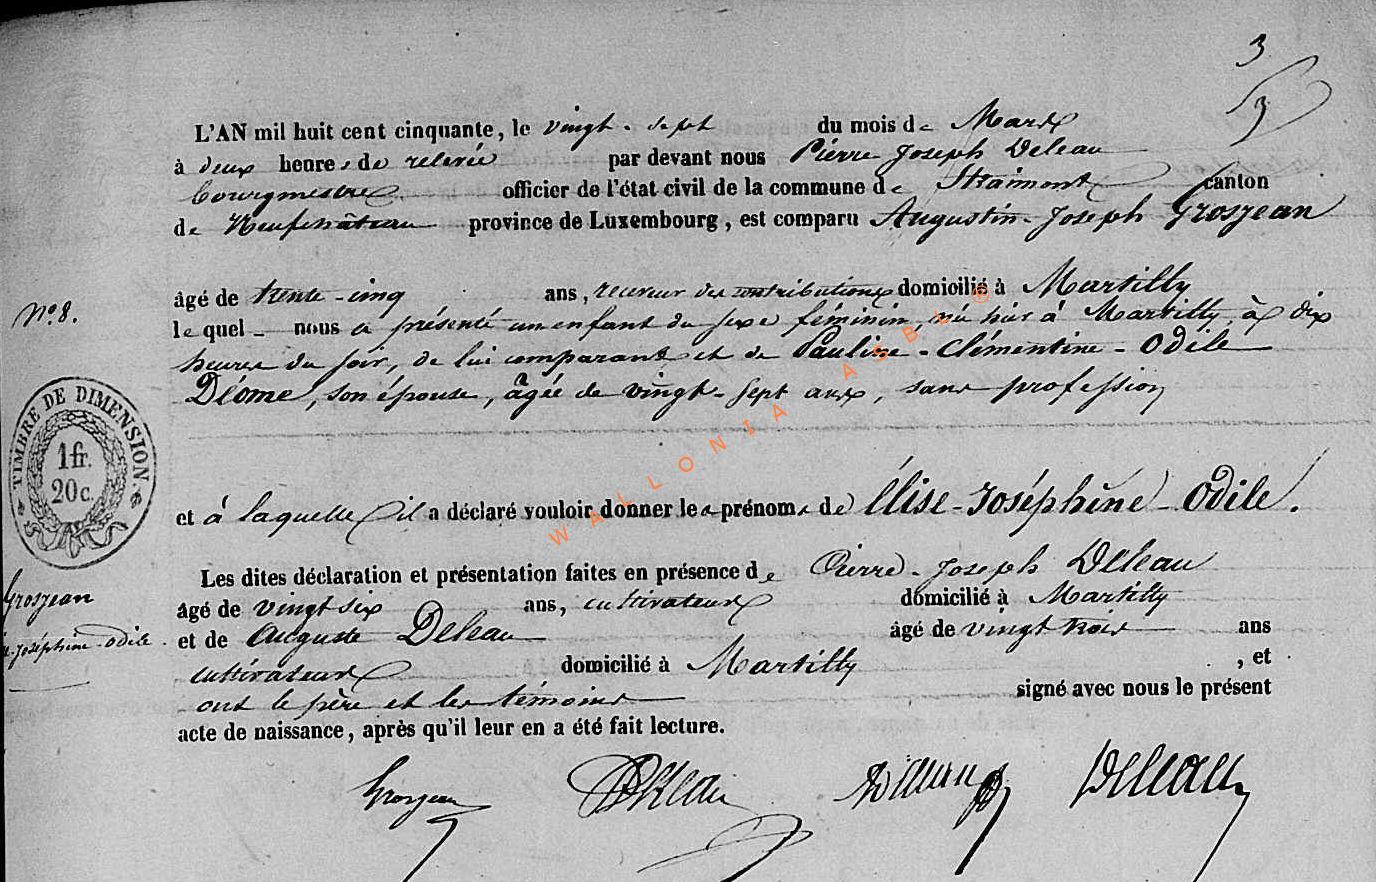 3
3
L'AN mil huit cent cinquante, le vingt-sept du mois de Mars
à deux heures de relevée par devant nous Pierre Joseph Deleau
bourgmestre officier de l'état civil de la commune de Straimont canton
de Neufchâteau province de Luxembourg, est comparu Augustin-Joseph Grosjean
âgé de trente-cinq ans, receveur des contributions domicilié à Martilly
N°. 8.
le quel nous a présenté un enfant du sexe féminin, né hier à Martilly, à dix
heures du soir, de lui comparant et de Pauline-Clémentine-Odile
Déome, son épouse, âgée de vingt-sept ans, sans profession
TIMBRE DE DIMENSION.
1 fr.
20 c.
et à laquelle il a déclaré vouloir donner les prénoms de Élise-Joséphine-Odile.
Les dites déclaration et présentation faites en présence de Pierre-Joseph Deleau
Grosjean
âgé de vingt six ans, cultivateur domicilié à Martilly
Joséphine-Odile.
et de Auguste Deleau âgé de vingt trois ans
cultivateur domicilié à Martilly, et
ont le père et les témoins signé avec nous le présent
acte de naissance, après qu'il leur en a été fait lecture.
Grosjean Deleau Deleau
WALLONIA ASBL ®